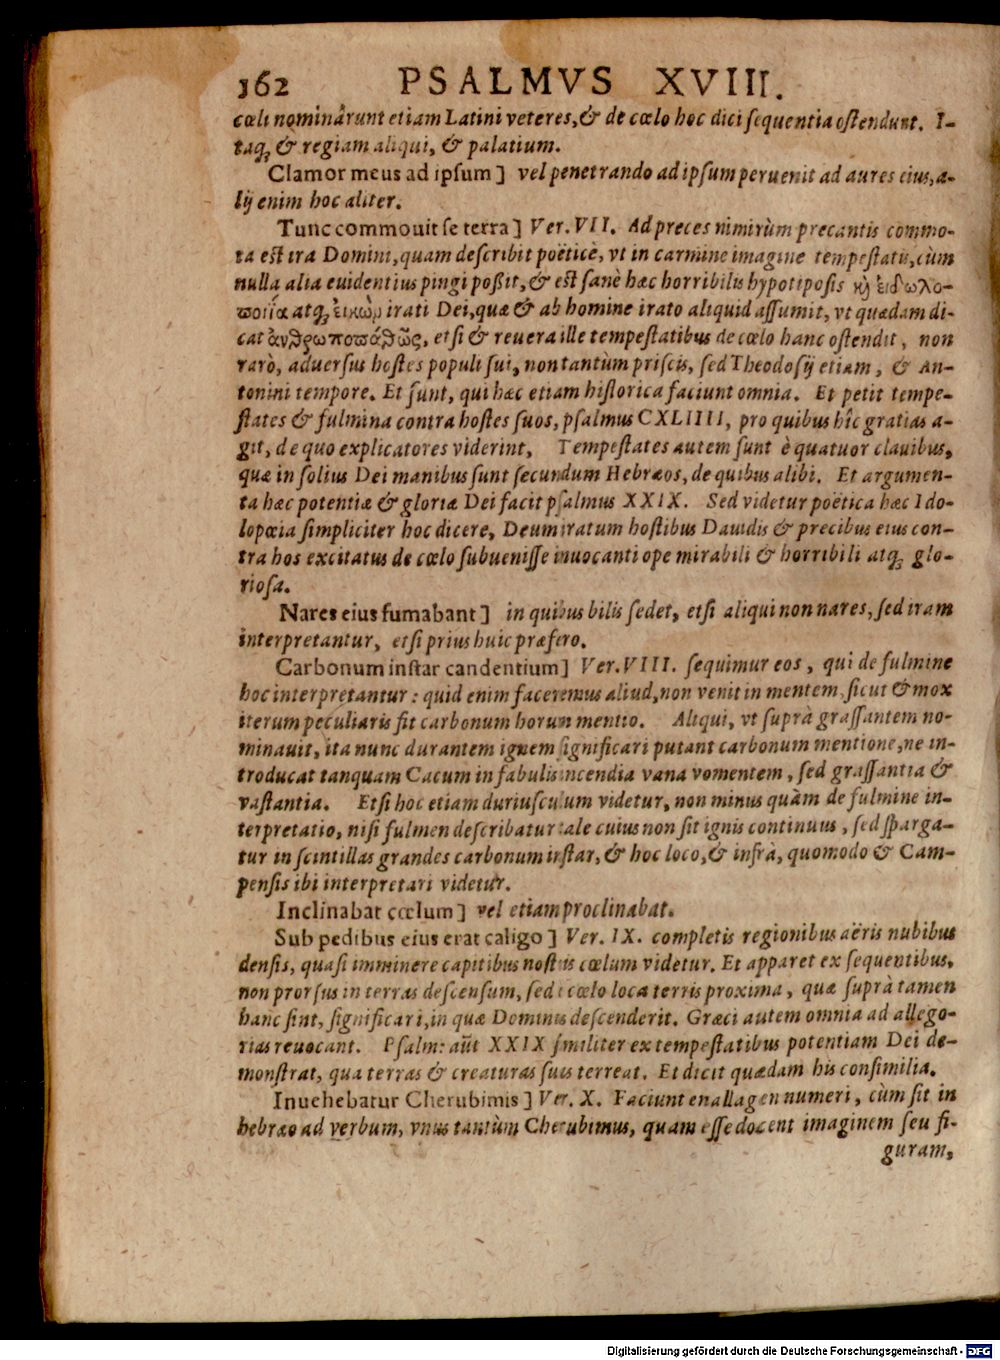 162 PSALMVS XVIII.
cœli nominârunt etiam Latini veteres, & de cœlo hoc dici sequentia ostendunt. I-
taq; & regiam aliqui, & palatium.
Clamor meus ad ipsum] vel penetrando ad ipsum peruenit ad aures eius, a-
lij enim hoc aliter.
Tunc commouit se terra] Ver. VII. Ad preces nimirùm precantis commo-
ta est ira Domini, quam describit poëticè, vt in carmine imagine tempestatis, cùm
nulla alia euidentius pingi poßit, & est sanè hæc horribilis hypotiposis κỳ εἰδωλο-
ποιΐα atq; εἰκὼν irati Dei, quæ & ab homine irato aliquid assumit, vt quædam di-
cat ἀνθρωποπάθῶς, etsi & reuera ille tempestatibus de cœlo hanc ostendit, non
rarò, aduersus hostes populi sui, non tantùm priscis, sed Theodosij etiam, & An-
tonini tempore. Et sunt, qui hæc etiam historica faciunt omnia. Et petit tempe-
states & fulmina contra hostes suos, psalmus CXLIIII, pro quibus hîc gratias a-
git, de quo explicatores viderint, Tempestates autem sunt è quatuor clauibus,
quæ in solius Dei manibus sunt secundum Hebræos, de quibus alibi. Et argumen-
ta hæc potentiæ & gloriæ Dei facit psalmus XXIX. Sed videtur poëtica hæc Ido-
lopœia simpliciter hoc dicere, Deum iratum hostibus Dauidis & precibus eius con-
tra hos excitatus de cœlo subuenisse inuocanti ope mirabili & horribili atq; glo-
riosa.
Nares eius fumabant] in quibus bilis sedet, etsi aliqui non nares, sed iram
interpretantur, etsi prius huic præfero.
Carbonum instar candentium] Ver. VIII. sequimur eos, qui de fulmine
hoc interpretantur: quid enim faceremus aliud, non venit in mentem, sicut & mox
iterum peculiaris fit carbonum horum mentio. Aliqui, vt suprà grassantem no-
minauit, ita nunc durantem ignem significari putant carbonum mentione, ne in-
troducat tanquam Cacum in fabulis incendia vana vomentem, sed grassantia &
vastantia. Etsi hoc etiam duriusculum videtur, non minus quàm de fulmine in-
terpretatio, nisi fulmen describatur tale cuius non sit ignis continuus, sed sparga-
tur in scintillas grandes carbonum instar, & hoc loco, & infrà, quomodo & Cam-
pensis ibi interpretari videtur.
Inclinabat cœlum] vel etiam proclinabat.
Sub pedibus eius erat caligo] Ver. IX. completis regionibus aëris nubibus
densis, quasi imminere capitibus nostris cœlum videtur. Et apparet ex sequentibus,
non prorsus in terras descensum, sed è cœlo loca terris proxima, quæ suprà tamen
hanc sint, significari, in quæ Dominus descenderit. Græci autem omnia ad allego-
rias reuocant. Psalm: aūt XXIX similiter ex tempestatibus potentiam Dei de-
monstrat, qua terras & creaturas suas terreat. Et dicit quædam his consimilia.
Inuehebatur Cherubimis] Ver. X. Faciunt enallagen numeri, cùm sit in
hebræo ad verbum, vnus tantùm Cherubimus, quam esse docent imaginem seu fi-
guram,
Digitalisierung gefördert durch die Deutsche Forschungsgemeinschaft - DFG